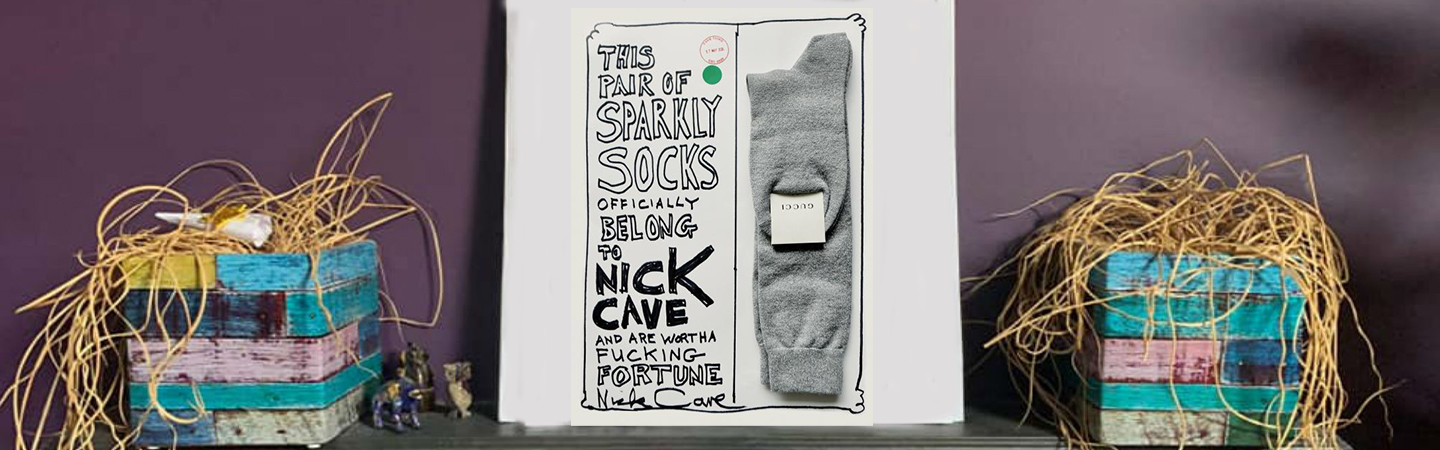 THIS
PAIR OF
SPARKLY
SOCKS
OFFICIALLY
BELONG
TO
NICK
CAVE
AND ARE WORTH A
FUCKING
FORTUNE
Nick Cave
GUCCI